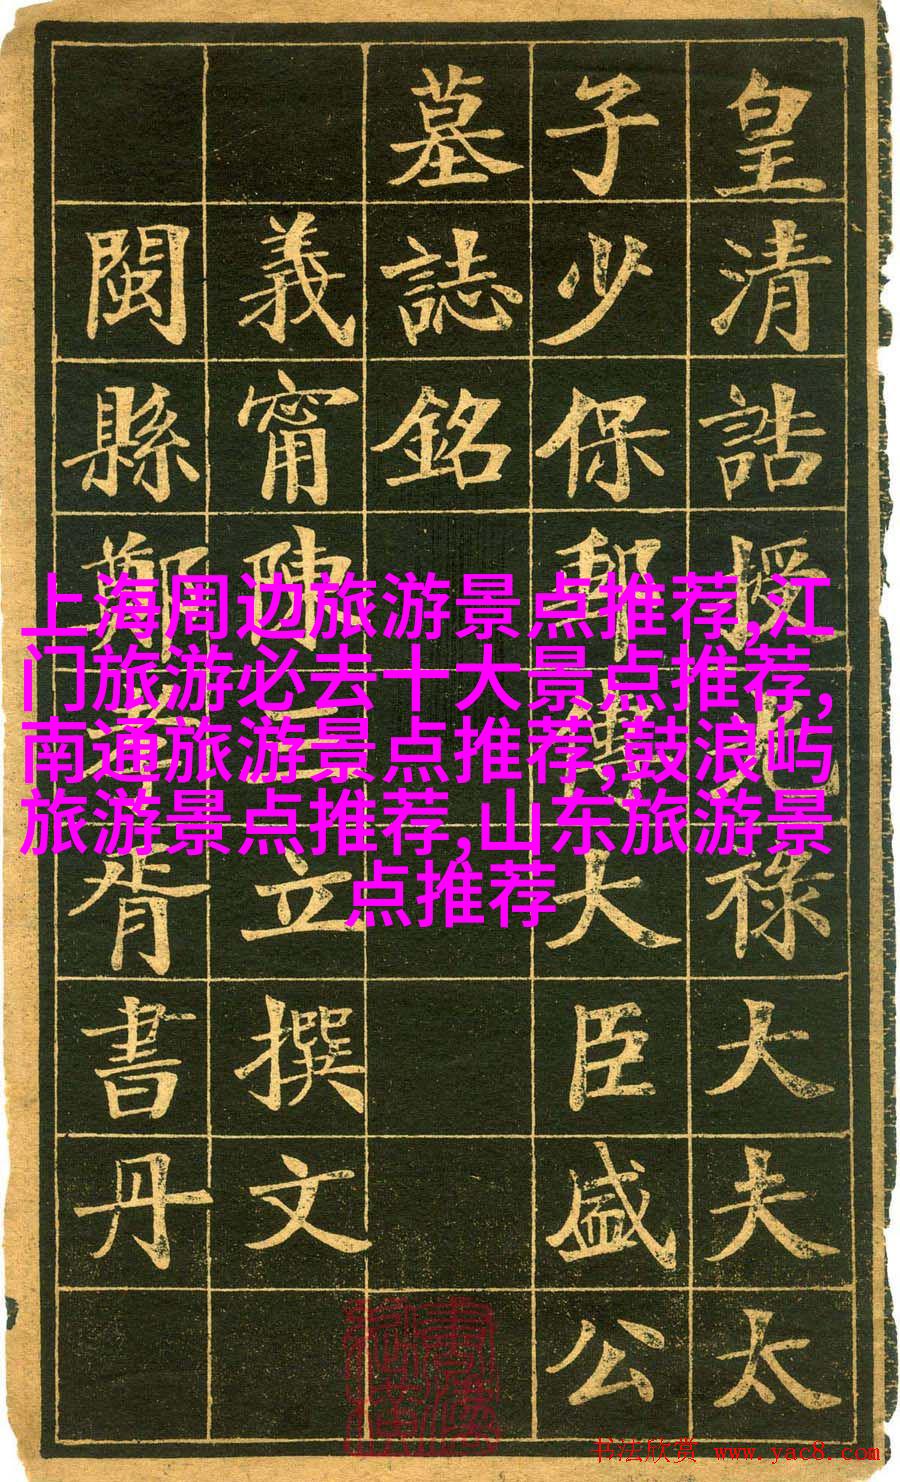 皇清誥授光祿大夫太
子少保郵傳大臣盛公
墓誌銘
義甯陳三立撰文
閩縣鄭孝胥書丹
上海周边旅游景点推荐,江
门旅游必去十大景点推荐,
南通旅游景点推荐,鼓浪屿
旅游景点推荐,山东旅游景
点推荐
书法欣赏 www.yac8.com